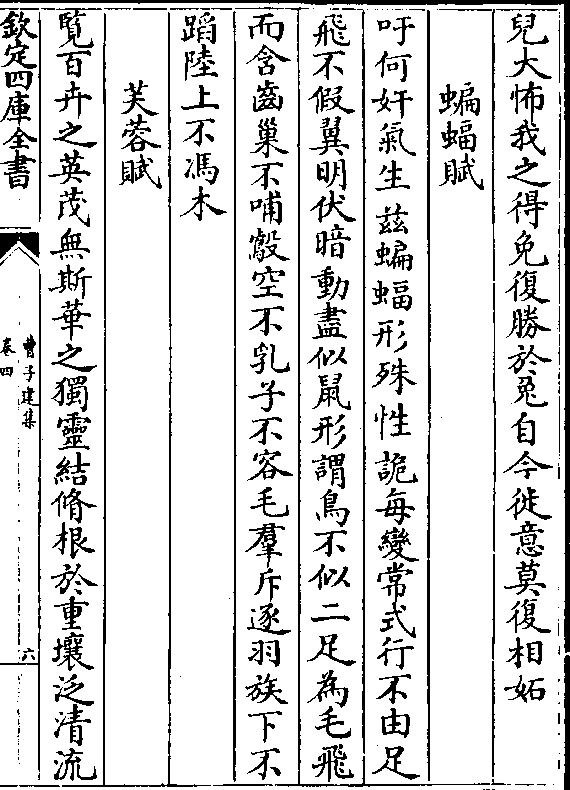 兒大怖我之得免復勝於兔自今徙意莫復相妬
蝙蝠賦
吁何奸氣生茲蝙蝠形殊性詭每變常式行不由足
飛不假翼明伏暗動盡似鼠形謂鳥不似二足為毛飛
而含齒巢不哺鷇空不乳子不容毛羣斥逐羽族下不
蹈陸上不馮木
芙蓉賦
覽百卉之英茂無斯華之獨靈結脩根於重壤泛清流
欽定四庫全書
曹子建集
卷四
六